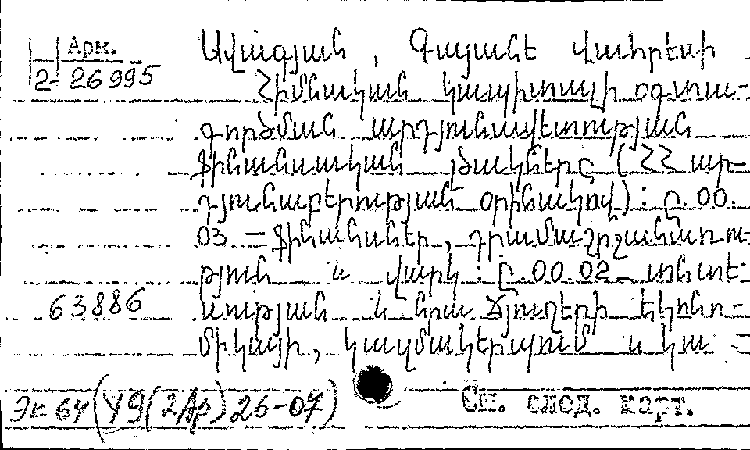 Арм.
2-26995
Ավագյան, Գայանե Վահրեսի
Հիմնական կապիտալի օգտա-
գործման արդյունավետության
ֆինանսական լծակները (ՀՀ ար-
դյունաբերության օրինակով): Ը.00.
03 – Ֆինանսներ, դրամաշրջանառու-
թյուն և վարկ: Ը.00.02 – տնտե-
63886
սության և նրա ճյուղերի էկոնո-
միկայի, կազմակերպում և կա =
Эк 64 (У9(2Ар) 26-07)
См. след. карт.